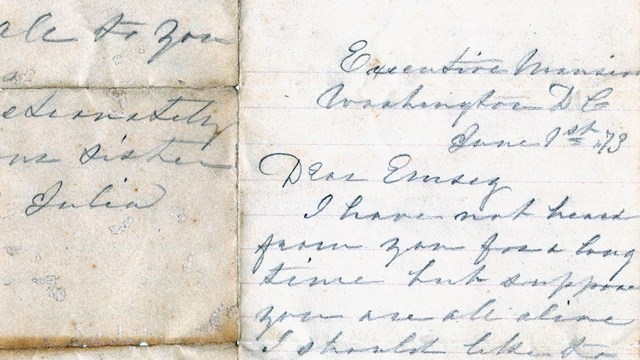 ale to you
ctionately
our sister
Julia
Executive Mansion
Washington D C
June 1st 73
Dear Emsey
I have not heard
from you for a long
time but suppose
you are all alive
I should like to